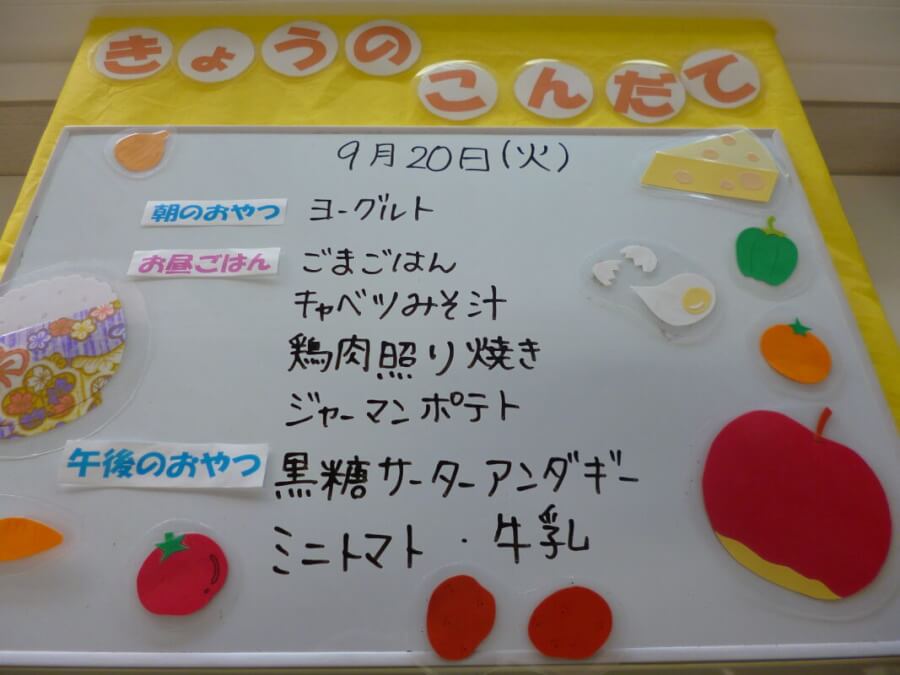 きょうの
こんだて
9月20日(火)
朝のおやつ ヨーグルト
お昼ごはん ごまごはん
キャベツみそ汁
鶏肉照り焼き
ジャーマンポテト
午後のおやつ 黒糖サーターアンダギー
ミニトマト・牛乳